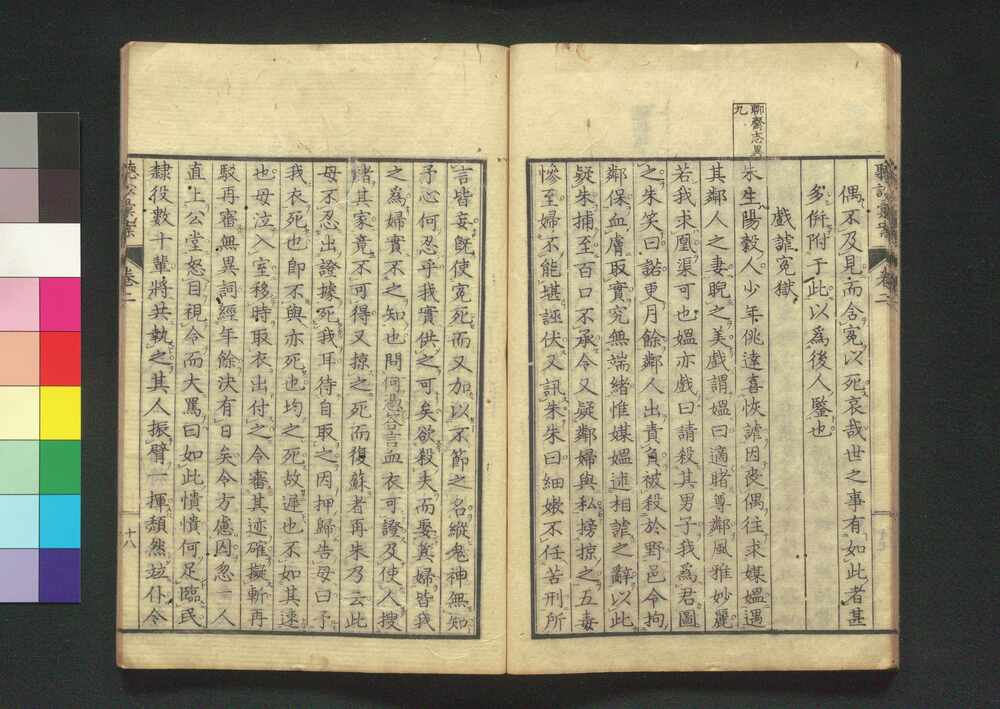 聊齋志異
九
偶不及見而含冤以死哀哉世之事有如此者甚
多併附于此以爲後人鑒也
戲謔冤獄
朱生陽穀人少年佻達喜恢謔因喪偶往求媒媼遇
其鄰人之妻睨之美戲謂媼曰適睹尊鄰風雅妙麗
若我求凰渠可也媼亦戲曰請殺其男子我爲君圖
之朱笑曰諾更月餘鄰人出責負被殺於野邑令拘
鄰保血膚取實究無端緒惟媒媼述相謔之辭以此
疑朱捕至百口不承令又疑鄰婦與私搒掠之五毒
慘至婦不能堪誣伏又訊朱朱曰細嫩不任苦刑所
言皆妄旣使冤死而又加以不節之名縱鬼神無知
予心何忍乎我實供之可矣欲殺夫而娶其婦皆我
之爲婦實不之知也問何憑答言血衣可證及使人搜
諸其家竟不可得又掠之死而復蘇者再朱乃云此
母不忍出證據死我耳待自取之因押歸告母曰予
我衣死也卽不與亦死也均之死故遲也不如其速
也母泣入室移時取衣出付之令審其迹確擬斬再
駁再審無異詞經年餘決有日矣令方慮囚忽一人
直上公堂怒目視令而大罵曰如此憒憒何足臨民
隸役數十輩將共執之其人振臂一揮頹然竝仆令
卷二
十八
卷二